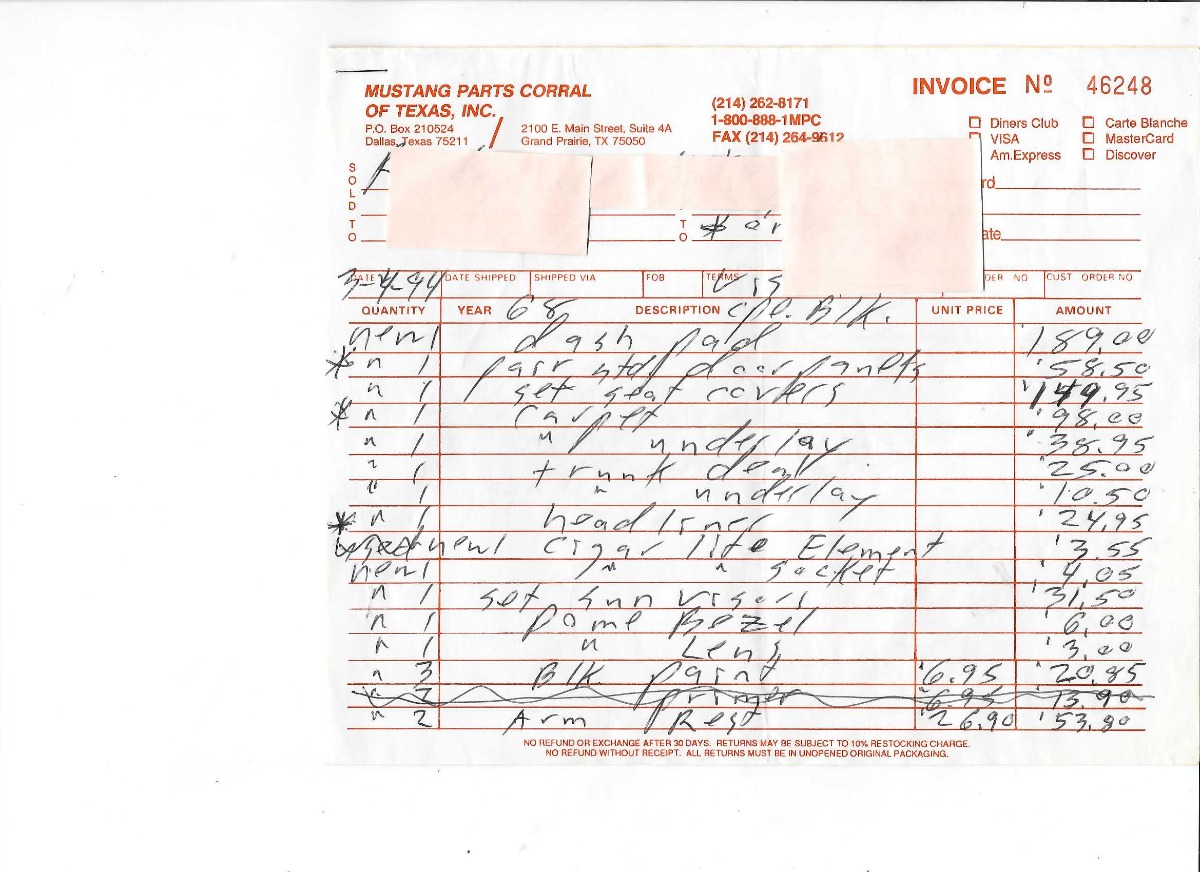 MUSTANG PARTS CORRAL
OF TEXAS, INC.
P.O. Box 210524
Dallas, Texas 75211
2100 E. Main Street, Suite 4A
Grand Prairie, TX 75050
(214) 262-8171
1-800-888-1MPC
FAX (214) 264-9612
INVOICE Nº 46248
Diners Club Carte Blanche
VISA MasterCard
Am.Express Discover
SOLD TO
TO
rd
ate
DATE DATE SHIPPED SHIPPED VIA FOB TERMS DER NO CUST ORDER NO
3-4-94 Vis
QUANTITY YEAR 68 DESCRIPTION cpe. Blk. UNIT PRICE AMOUNT
new 1 dash pad 189.00
* " 1 pair std door panels 58.50
" 1 set seat covers 149.95
* " 1 carpet 98.00
" 1 " underlay 38.95
" 1 trunk 25.00
" 1 " underlay 10.50
* " 1 headliner 24.95
new 1 cigar lite Element 3.55
new 1 " " socket 4.05
" 1 set sun visors 31.50
" 1 Dome Bezel 6.00
" 1 " Lens 3.00
" 3 Blk paint 6.95 20.85
" 2 primer 6.95 13.90
" 2 Arm Rest 26.90 53.80
NO REFUND OR EXCHANGE AFTER 30 DAYS. RETURNS MAY BE SUBJECT TO 10% RESTOCKING CHARGE.
NO REFUND WITHOUT RECEIPT. ALL RETURNS MUST BE IN UNOPENED ORIGINAL PACKAGING.